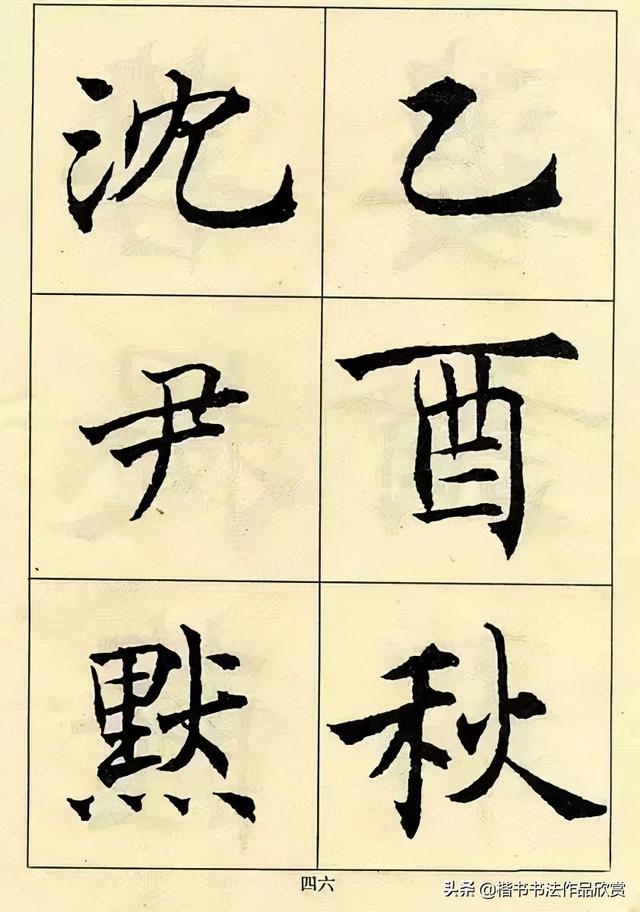 乙酉秋
沈尹默
四六
头条 @楷书书法作品欣赏